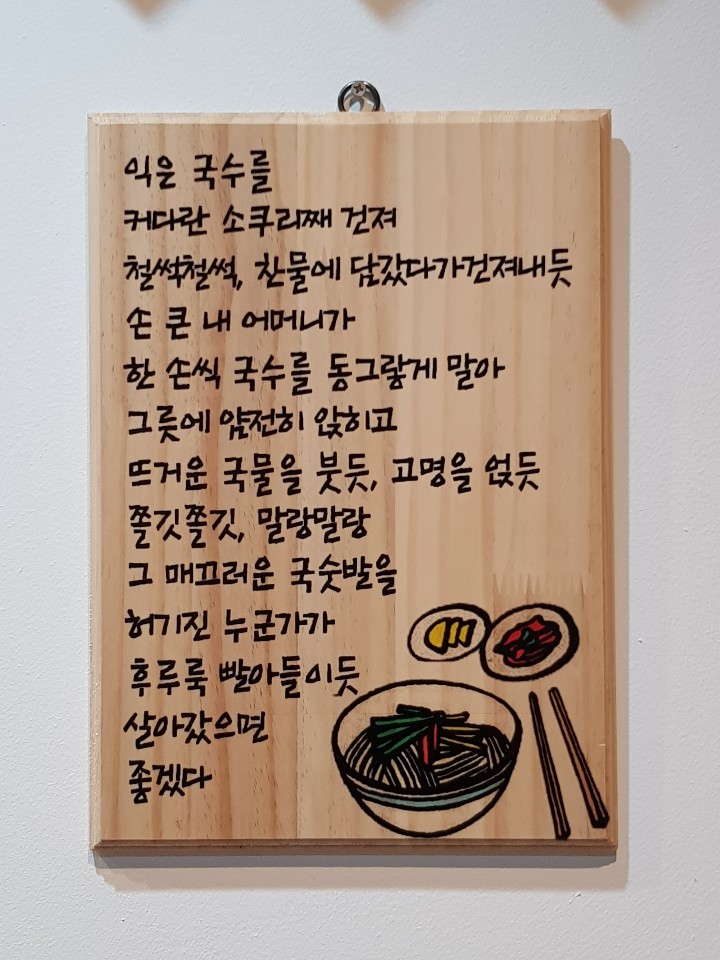 익은 국수를
커다란 소쿠리째 건져
철썩철썩, 찬물에 담갔다가건져내듯
손 큰 내 어머니가
한 손씩 국수를 동그랗게 말아
그릇에 얌전히 앉히고
뜨거운 국물을 붓듯, 고명을 얹듯
쫄깃쫄깃, 말랑말랑
그 매끄러운 국숫발을
허기진 누군가가
후루룩 빨아들이듯
살아갔으면
좋겠다